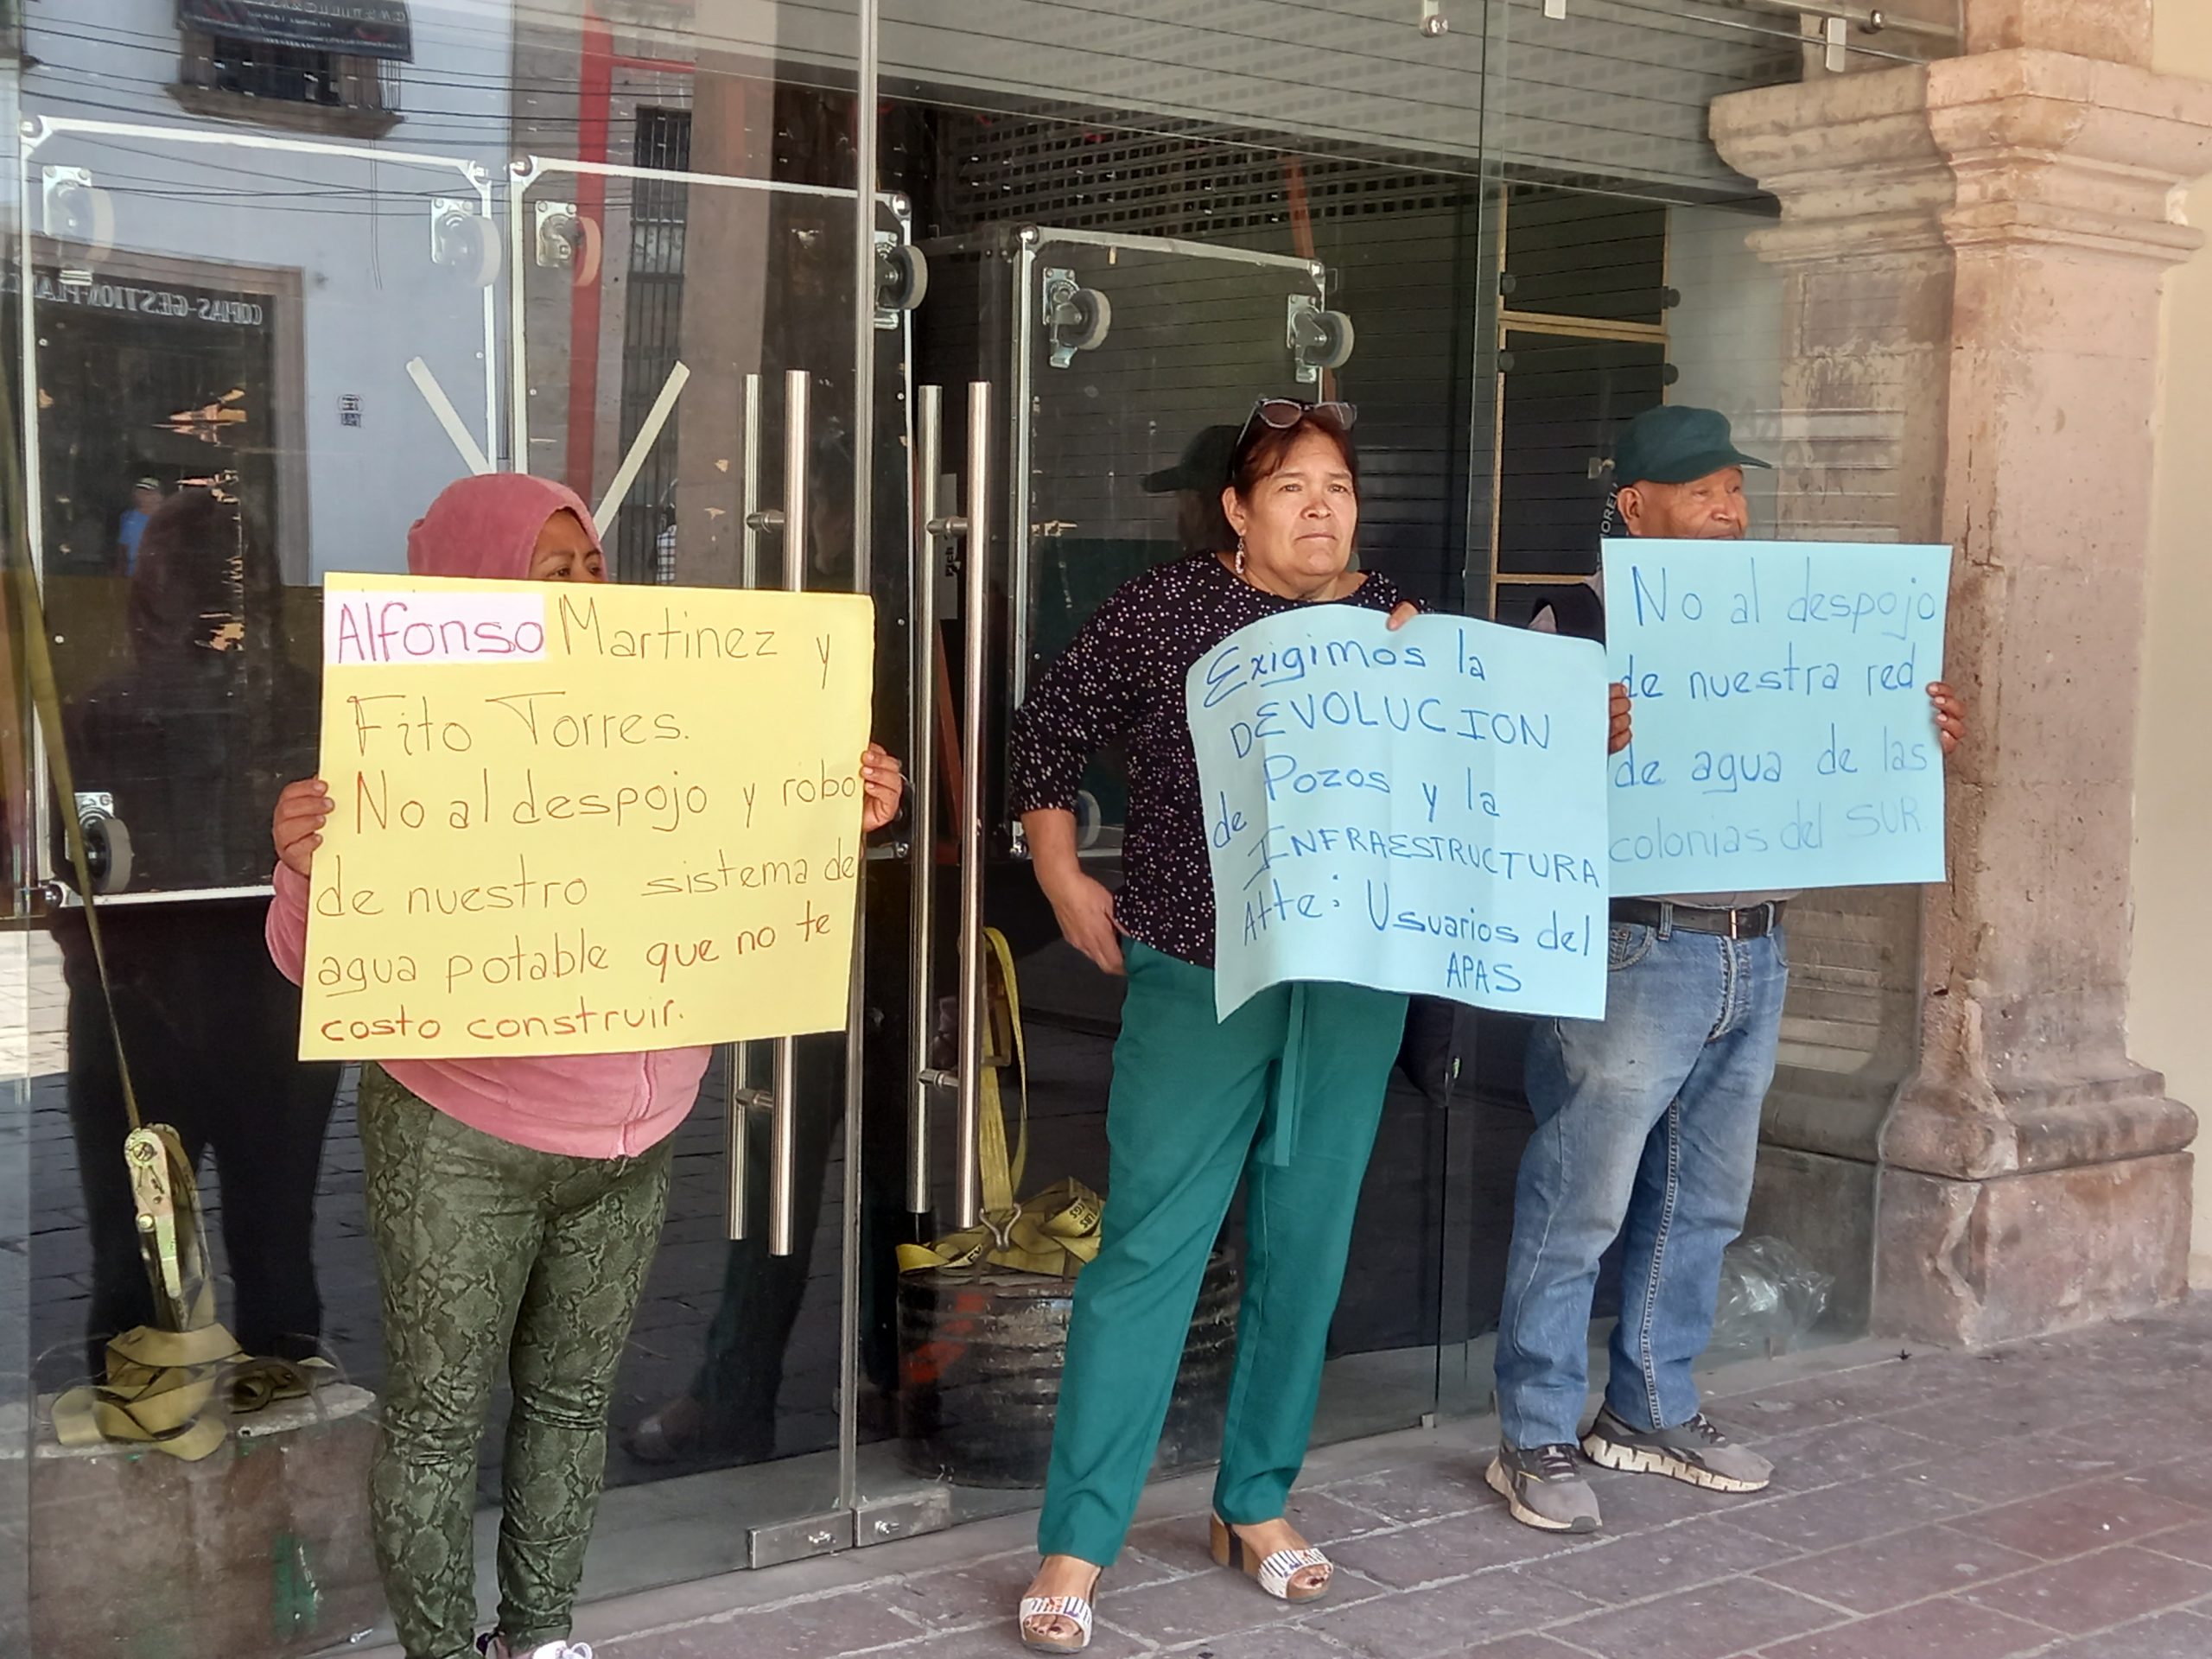 Alfonso Martinez y
Fito Torres.
No al despojo y robo
de nuestro sistema de
agua potable que no te
costo construir.
Exigimos la
DEVOLUCION
de Pozos y la
INFRAESTRUCTURA
Atte: Usuarios del
APAS
No al despojo
de nuestra red
de agua de las
colonias del SUR.
COPIAS-GESTION-PLA